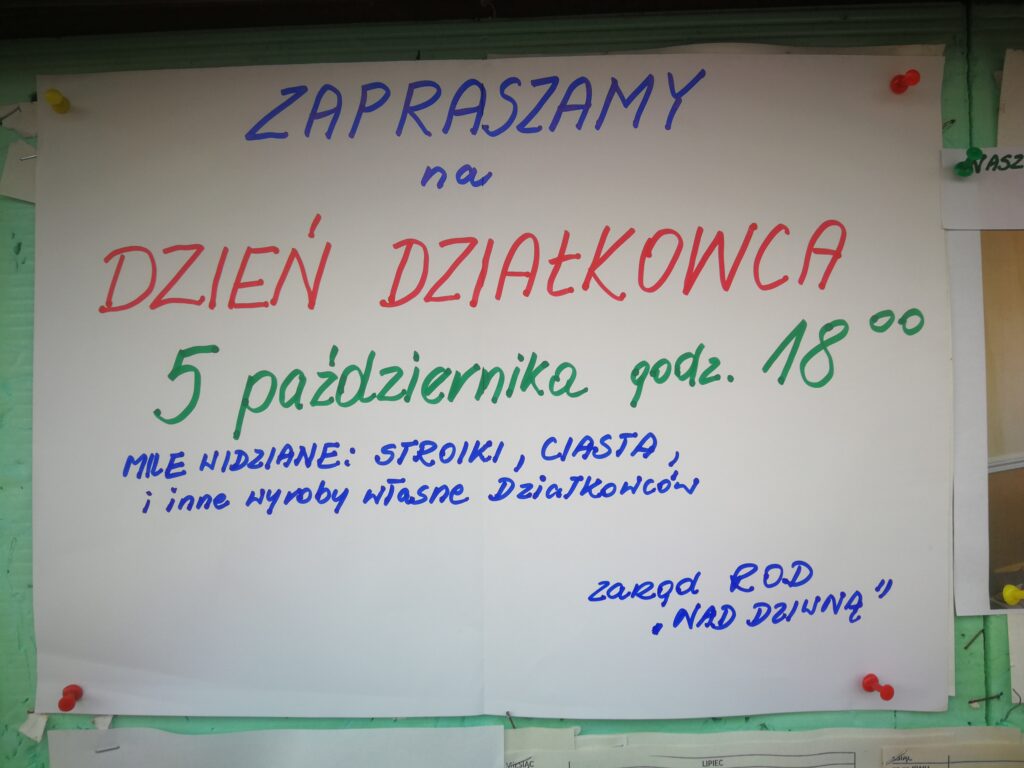 ZAPRASZAMY
na
DZIEŃ DZIAŁKOWCA
5 października godz. 18⁰⁰
MILE WIDZIANE: STROIKI, CIASTA,
i inne wyroby własne Działkowców
zarząd ROD
„NAD DZIWNĄ"
NASZ
MIESIĄC
LIPIEC